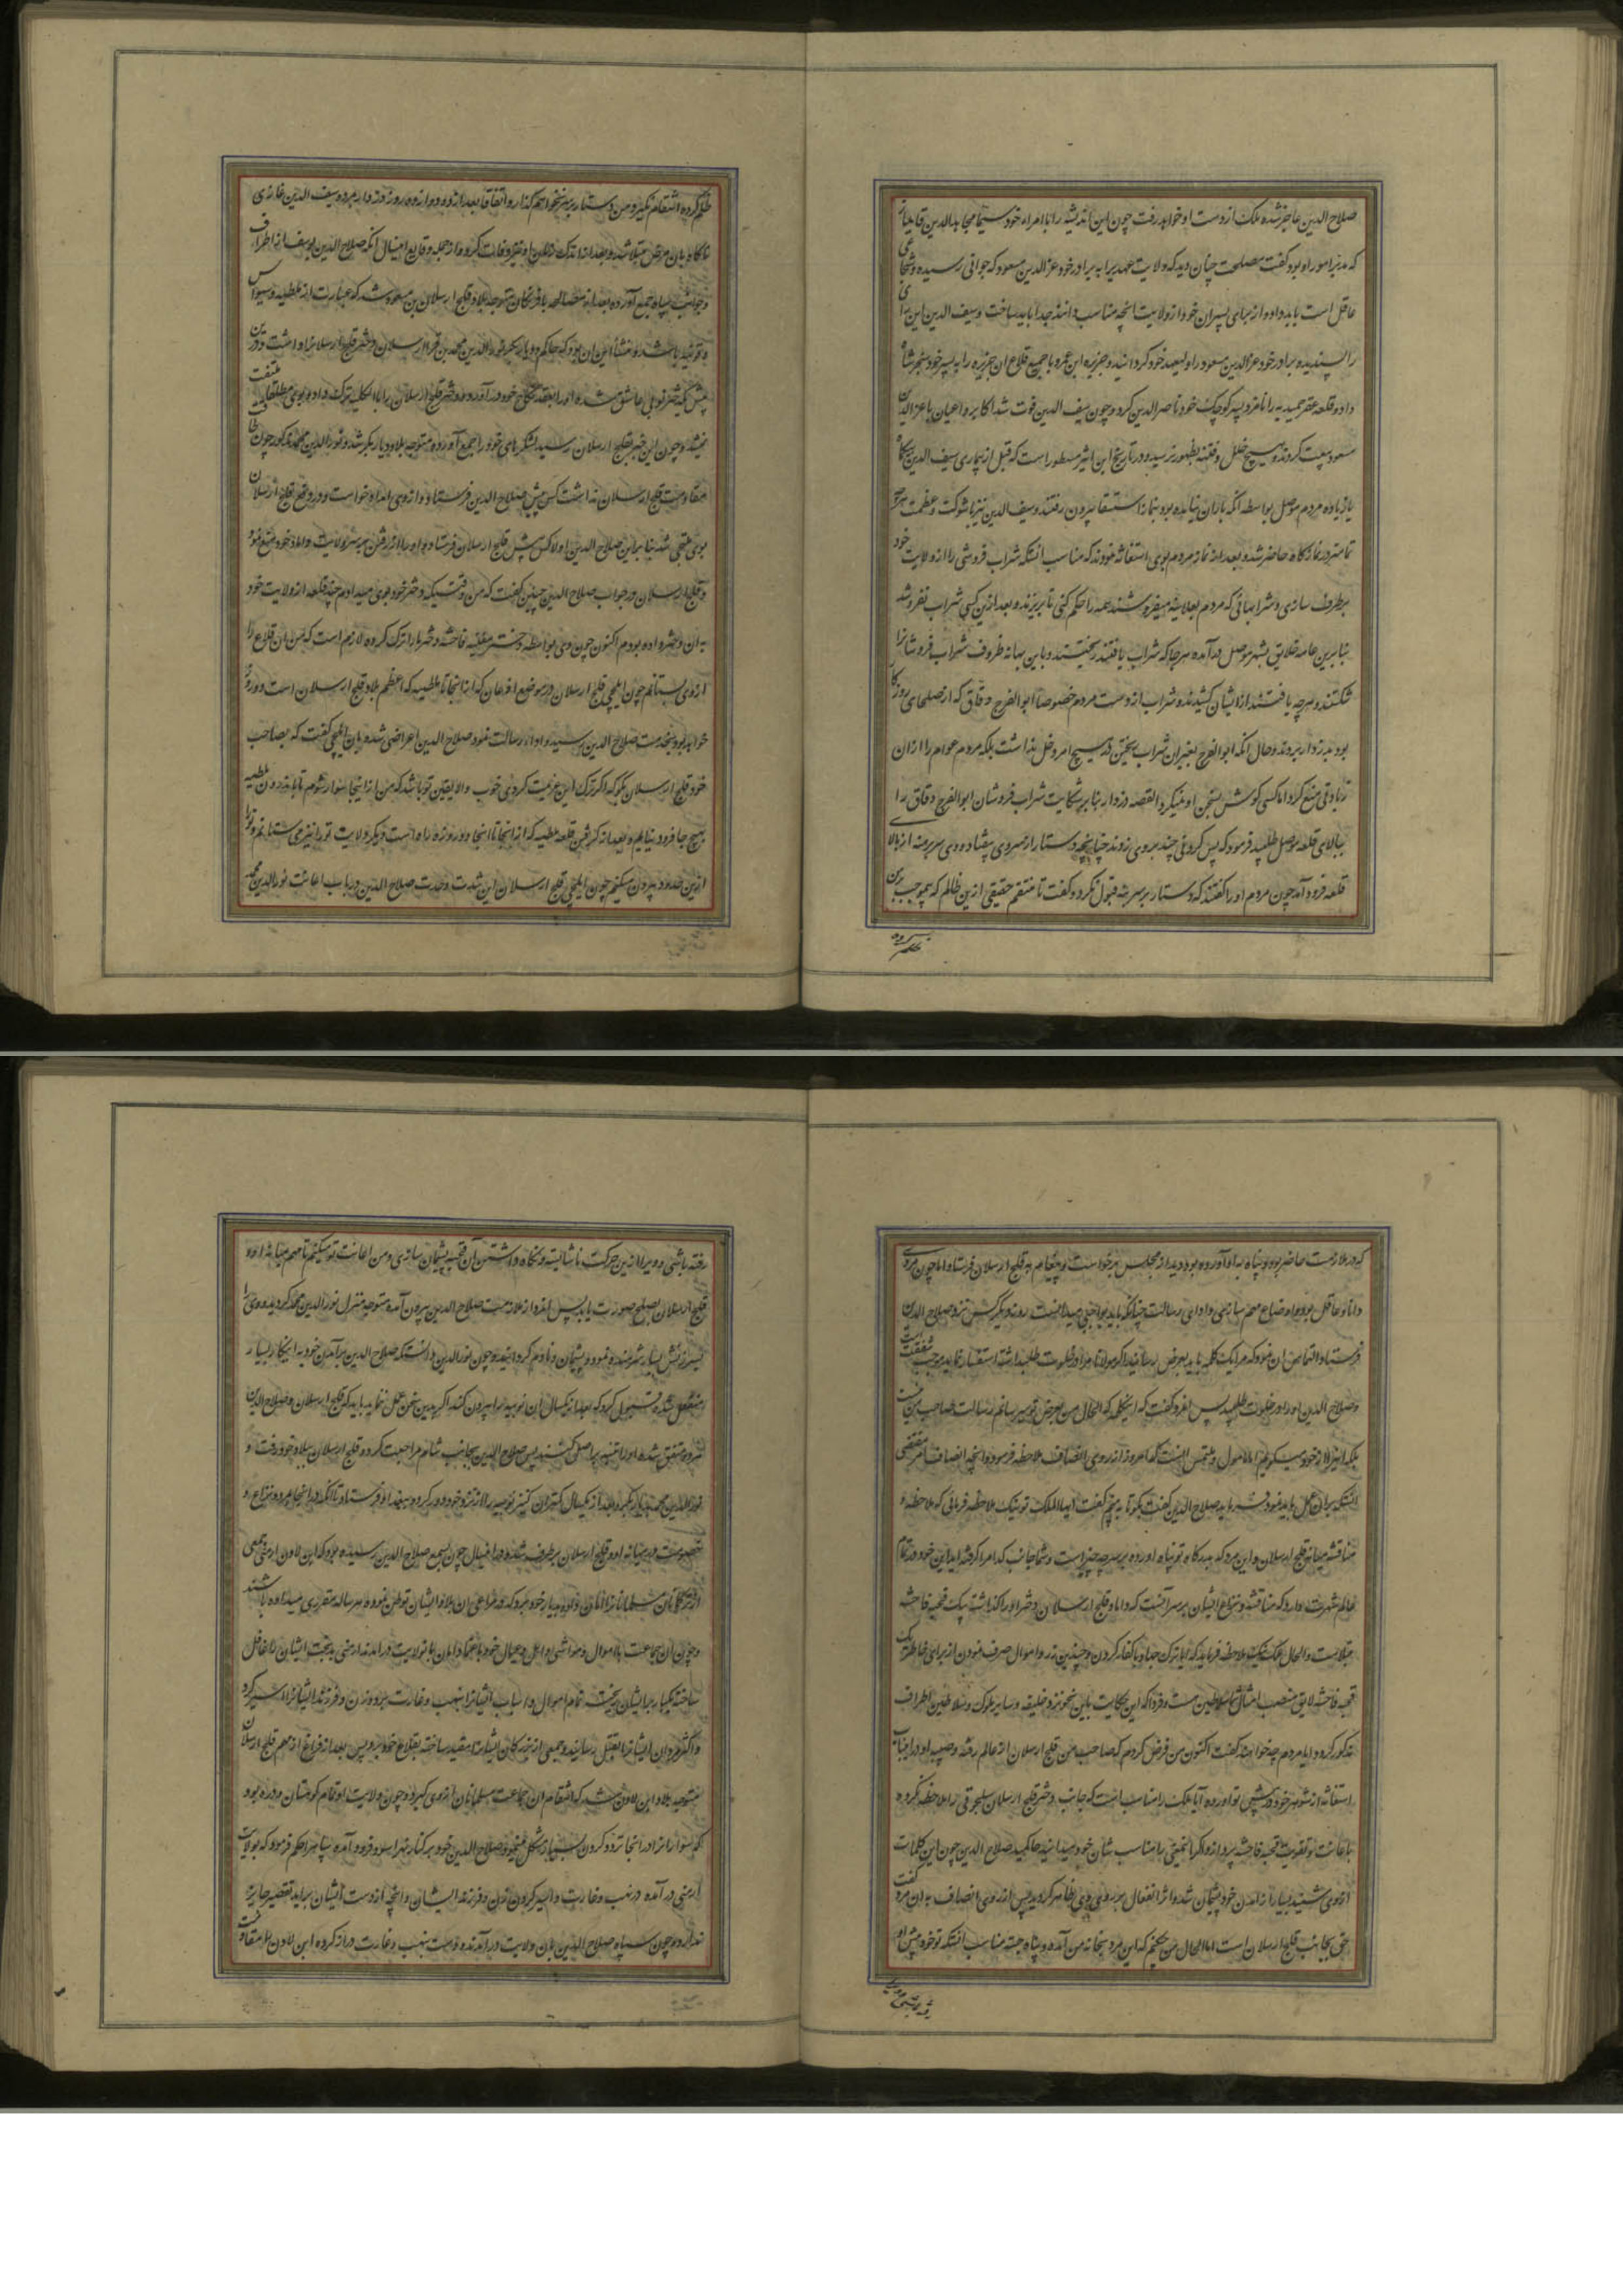 صلاح الدین عاجز شده ملک از دست او خواهد رفت چون این اندیشه را با امراء خود سیما مجاهد الدین قایماز
که مدبر امور او بود گفت مصلحت چنان دید که ولایت عهد را به برادر خود عز الدین مسعود که جوانی رسیده و شجاع
عاقل است باید داد و از برای پسران خود از ولایت انچه مناسب دانند جدا باید ساخت و سیف الدین این رای
را پسندیده برادر خود عز الدین مسعود را ولیعهد خود کردانید و جزیره ابن عمر و با جمیع قلاع ان جزیره را به پسر خود سنجر شاه
داد و قلعه عقر حمیدیه را نامزد پسر کوچک خود ناصر الدین کرد و چون سیف الدین فوت شد اکابر و اعیان با عز الدین
مسعود بیعت کردند و هیچ خلل و فتنه بظهور نرسید و در تاریخ ابن اثیر مسطور است که قبل از بیماری سیف الدین
مردم موصل بواسطه انکه باران نباریده بود بنماز استسقا بیرون رفتند و سیف الدین نیز با شوکت و عظمت
تمامتر در نمازکاه حاضر شد و بعد از نماز مردم بوی استغاثه نمودند که مناسب انستکه شراب فروشی را از ولایت خود
برطرف سازی و شرابهائی که مردم بعلانیه میفروشند همه را حکم کنی تا بریزند و بعد ازین کسی شراب نفروشد
بنابرین عامه خلایق بشهر موصل در آمده هرجا که شراب یافتند ریختند و باین بهانه ظروف شراب فروشانرا
شکستند و هرچه یافتند از ایشان کشیدند و شراب از دست مردم خصوصا ابو الفرج دقاق که از صلحای روزکار
بود و حال انکه ابو الفرج بغیر ان شراب ریختن در هیچ امر دخل نداشت بلکه مردم عوام را از ان
زیادتی منع کرد اما کسی کوش بسخن او نمیکرد القصه دزدار بنابر شکایت شراب فروشان ابو الفرج دقاق را
ببالای قلعه موصل طلبید فرمود که پس کردنی چند بر وی زدند چنانچه دستار از سر وی بیفتاد و وی سر برهنه از بالا
قلعه فرود آمد چون مردم او را گفتند که دستار بر سر نه قبول نکرد و گفت تا منتقم حقیقی ازین ظالم که بموجب بر من
ظلم کرده انتقام نکیرد من دستار بر سر نخواهم گذارد اتفاقا بعد از دوازده روز دزدار مرد و سیف الدین غازی
ناکاه بان مرض مبتلا شد و بعد از اندک زمان او نیز وفات کرد و از جمله وقایع این سال انکه صلاح الدین یوسف از اطراف
و جوانب سپاه جمع آورده بعد از مصالحه با فرنگان متوجه بلاد قلیج ارسلان بن مسعود شد که عبارت از ملطیه و سیواس
و قونیه باشد و منشاء این ان بود که حاکم دیار بکر نور الدین محمد بن قرا ارسلان دختر قلیج ارسلانرا داشت
عاشق شده او را بعقد نکاح خود در آورد و دختر قلیج ارسلان را بالکلیه ترک داده بوی مطلقا ملتفت
نمیشد و چون این خبر بقلیج ارسلان رسید لشکرهای خود را جمع آورده متوجه بلاد دیار بکر شد و نور الدین محمد مذکور چون طاقت
مقاومت قلیج ارسلان نداشت کس پیش صلاح الدین فرستاد و از وی امداد خواست و در دفع قلیج ارسلان
بوی ملتجی شد بنا براین صلاح الدین اولا کس پیش قلیج ارسلان فرستاد و او را از رفتن بر سر ولایت داماد خود منع نمود
و قلیج ارسلان در جواب صلاح الدین چنین گفت که من وقتیکه دختر خود بوی میدادم چند قلعه از ولایت خود
به ان دختر داده بودم اکنون چون وی بواسطه مغنیه فاحشه دختر مرا ترک کرده لازم است که من ان قلاع را
از وی بستانم چون ایلچی قلیج ارسلان
خواند بود بخدمت صلاح الدین رسید و اداء رسالت نمود صلاح الدین اعراضی شده بان ایلچی گفت که بصاحب
خود قلیج ارسلان بگو که اگر ترک این عزیمت کردی خوب والا یقین تو باشد که من از اینجا سوار شوم تا باندرون ملطیه
بهیچ جا فرود نیایم و بعد از گرفتن قلعه ملطیه که از اینجا تا انجا دو روزه راه است دیگر ولایت تو را نیز می ستانم و ترا
ازین حدود بیرون میکنم چون ایلچی قلیج ارسلان این شدت و حدت صلاح الدین در باب اعانت نور الدین محمد
که در ملازمت حاضر بود و پناه باو آورده بود دید از مجلس برخواست و پیغام به قلیج ارسلان فرستاد اما چون مردی
دانا و عاقل بود و
فرستاد و التماس ان نمود که مرا یک کلمه باید بعرض رسانید
و صلاح الدین او را در خلوت طلبید پس انمرد گفت که اینکلمه که الحال من بعرض تو میرسانم رسالت صاحب من نیست
بلکه انرا از خود میگویم اما مامول و ملتمس انست که امروز از روی انصاف ملاحظه فرموده انچه انصاف مقتضی
انستکه بران عمل باید نمود صلاح الدین گفت بگو تا به بینم گفت ایها الملک تو نیک ملاحظه فرمائی که ملاحظه و
مناقشه میانه قلیج ارسلان و این مرد که بدرکاه تو پناه اورده بر سر چه چیز است و شما جانب کدام را گرفته اید این خود در تمام
عالم شهرت دارد که مناقشه و نزاع ایشان بر سر آنست که داماد قلیج ارسلان دختر او را گذاشته بیک قحبه فاحشه
مبتلاست والحال ملک نیک ملاحظه فرماید که ایا ترک جهاد با کفار کردن و چندین زر و اموال صرف نمودن از برای خاطر یک
قحبه فاحشه لایق منصب امثال شما سلاطین هست و فردا که این حکایت باین نحو نزد خلیفه و سایر ملوک و سلاطین اطراف
مذکور گردد ایا مردم چه خواهند گفت اکنون من فرض کردم که صاحب من قلیج ارسلان از عالم رفته و صبیه او در اینباب
استغاثه از شوهر خود پیش تو آورده آیا ملک را مناسب انست که جانب دختر قلیج ارسلان سلجوقی را ملاحظه نکرده
با عانت و تقویت قحبه فاحشه پردازد اگر انمعنی را مناسب شان خود میدانید حاکمید صلاح الدین چون این کلمات
از وی شنید بسیار از آمدن خود پشیمان شد و اثر انفعال بر روی وی ظاهر گردید پس از روی انصاف به ان مرد گفت
حق بجانب قلیج ارسلان است اما الحال من چکنم که این مرد بخانه من آمده و پناه جسته مناسب انستکه تو خود پیش او
رفته باشی و ویرا ازین حرکت ناشایسته و نگاه داشتن آن قحبه پشیمان سازی و من اعانت تو میکنم تا مهم میانه او و
قلیج ارسلان بصلح صورت یابد پس انمرد از ملازمت صلاح الدین بیرون آمده متوجه منزل نور الدین محمد گردید و وی را
بسرزنش بسیار شرمنده نمود و پشیمان و نادم گردانید و چون نور الدین دانستکه صلاح الدین از آمدن خود به اینکار بسیار
منفعل شده قبول کرد که بعد از یکسال ان نوجیه را بیرون کند اگر بدین سخن عمل ننماید باید که قلیج ارسلان و صلاح الدین
هر دو متفق شده او را تنبیه بر اصل کنند پس صلاح الدین بجانب شام مراجعت کرد و قلیج ارسلان ببلاد خود رفت و
نور الدین محمد بدیار بکر و بعد از یکسال کنیز نوجیه را از نزد خود دور کرد و ببغداد فرستاد تا انکه در انجا مرد و نزاع و
خصومت در میانه او و قلیج ارسلان برطرف شد و در اینسال چون بسمع صلاح الدین رسیده بود که ابن لاون ارمنی جمعی
از ترکمانان مسلمانانرا امان داده بدیار خود برد که در مراعی ان بلاد ایشان توطن نموده هر ساله مقرری میداده باشند
و چون ان جماعت با اموال و مواشی و اهل و عیال خود باعتماد امان با نولایت در امدند ارمنی بدبخت ایشان را غافل
ساخته یکبار بر ایشان ریخت تمام اموال و اسباب ایشانرا بنهب و غارت برد و زن و فرزند ایشانرا اسیر کرد
و اکثر مردان ایشانرا بقتل رسانید و جمعی از بزرگان ایشانرا مقید ساخته بقلاع خود برد پس بعد از فراغ از مهم قلیج ارسلان
متوجه بلاد ابن لاون شد که انتقام ان جماعت مسلمانان از وی گیرد و چون ولایت او تمام کوهستان و دره بود
که سوارانرا در انجا تردد کردن بسیار مشکل مینمود صلاح الدین خود بر کنار نهر اسود فرود آمده سپاهرا حکم فرمود که بولایت
ارمنی در آمده در نهب و غارت و اسیر کردن زن و فرزند ایشان و انچه از دست ایشان براید تقصیر جایز
ندارند و چون سپاه صلاح الدین بان ولایت در آمدند و دست بنهب و غارت دراز کرده ابن لاون تاب مقاومت